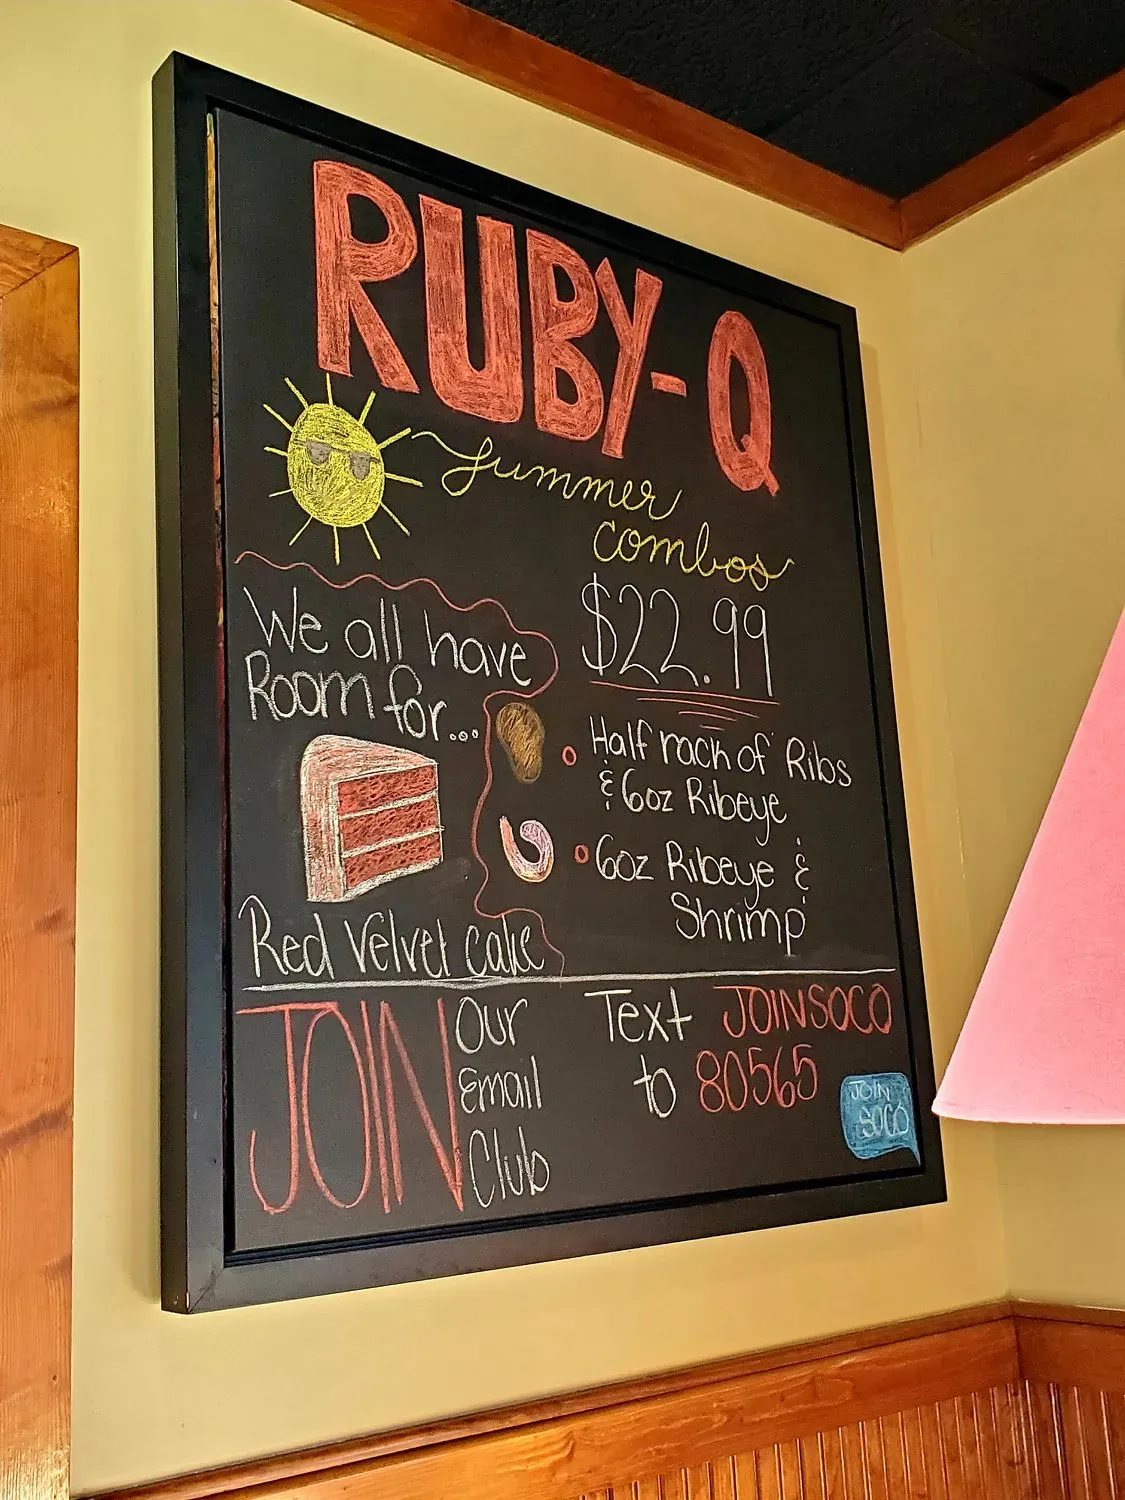 RUBY-Q
Summer
combos
$22.99
We all have
Room for...
Red Velvet cake
Half rack of Ribs
& 6oz Ribeye
6oz Ribeye &
Shrimp
JOIN
Our
Email
Club
Text JOINSOCO
to 80565
JOIN
SOCO